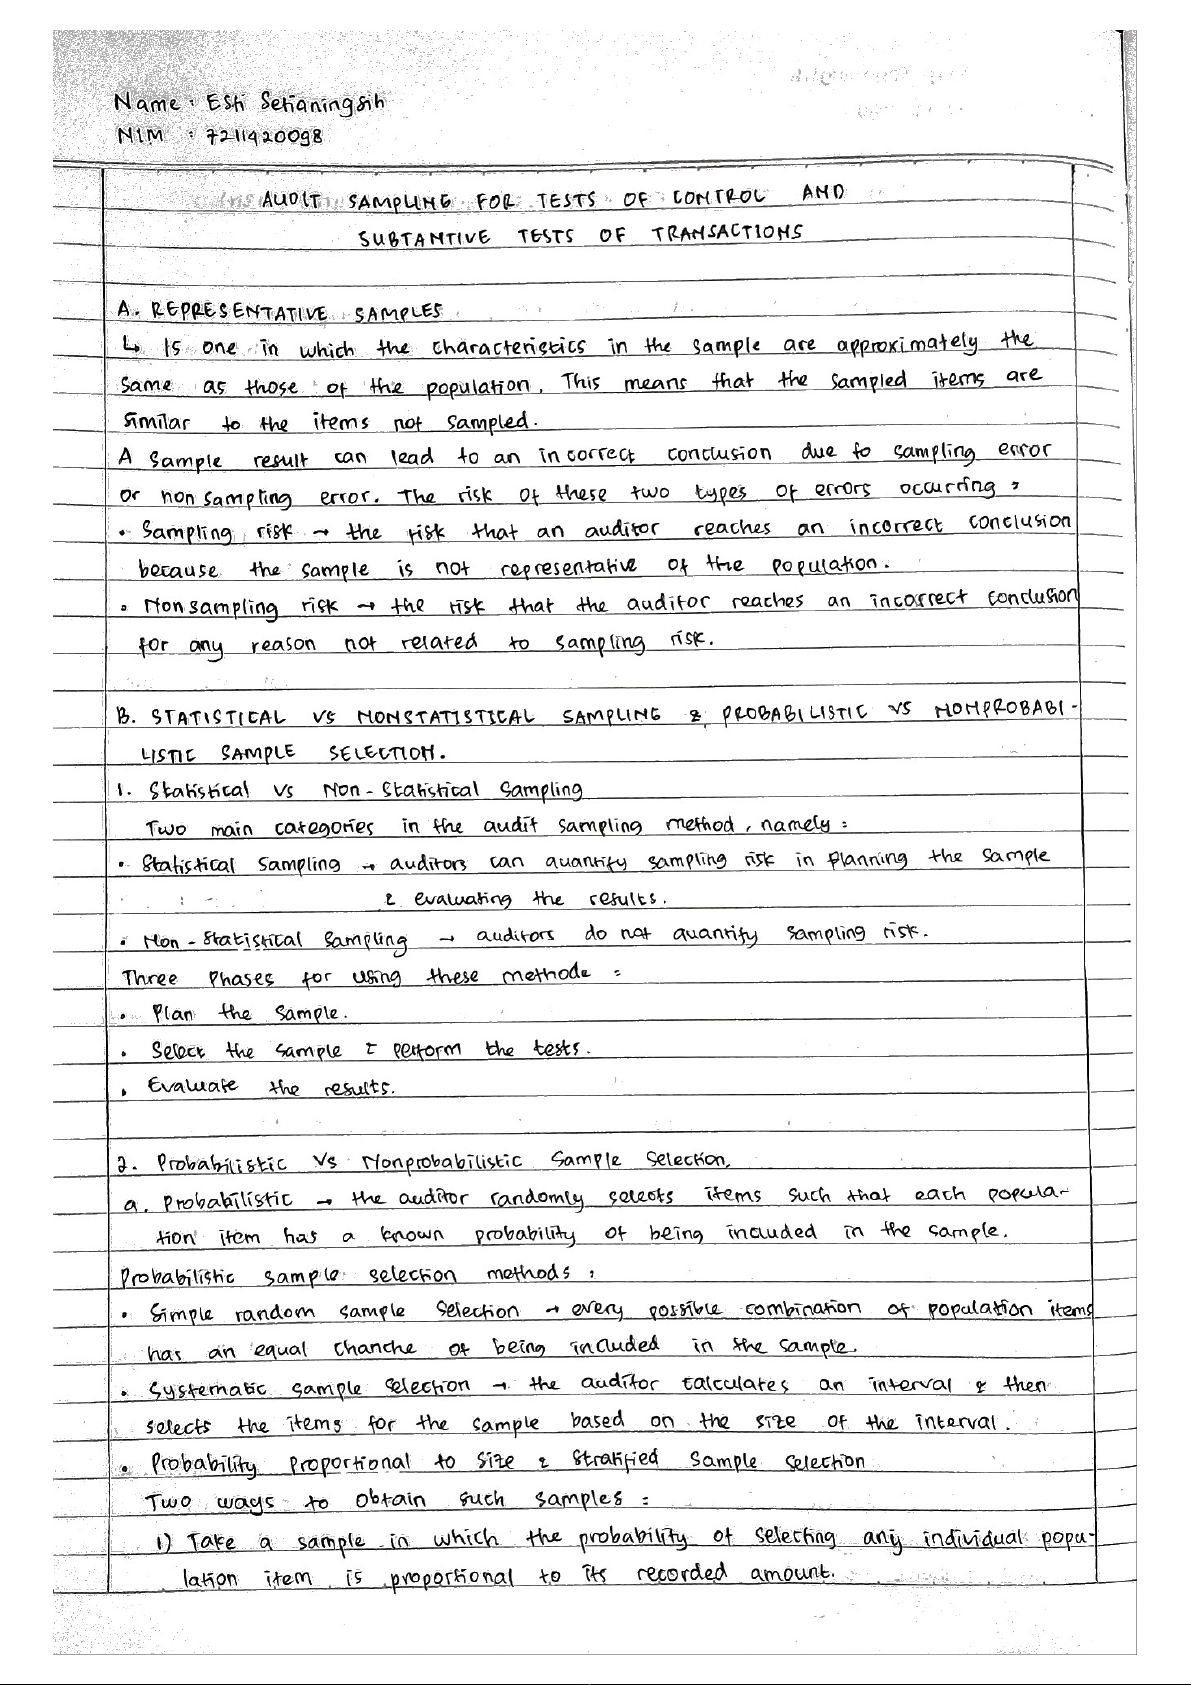 Name : Esti Setianingsih
NIM : 7211420098
AUDIT SAMPLING FOR TESTS OF CONTROL AND
SUBTANTIVE TESTS OF TRANSACTIONS
A. REPRESENTATIVE SAMPLES
↳ Is one in which the characteristics in the sample are approximately the
same as those of the population. This means that the sampled items are
similar to the items not sampled.
A sample result can lead to an incorrect conclusion due to sampling error
or non sampling error. The risk of these two types of errors occurring :
• Sampling risk → the risk that an auditor reaches an incorrect conclusion
because the sample is not representative of the population.
• Nonsampling risk → the risk that the auditor reaches an incorrect conclusion
for any reason not related to sampling risk.
B. STATISTICAL VS NONSTATISTICAL SAMPLING & PROBABILISTIC VS NONPROBABI-
LISTIC SAMPLE SELECTION.
1. Statistical vs Non-Statistical Sampling
Two main categories in the audit sampling method, namely :
• Statistical Sampling → auditors can quantify sampling risk in planning the sample
& evaluating the results.
• Non-Statistical Sampling → auditors do not quantify sampling risk.
Three Phases for using these methode :
• Plan the sample.
• Select the sample & perform the tests.
• Evaluate the results.
2. Probabilistic Vs Nonprobabilistic Sample Selection.
a. Probabilistic → the auditor randomly selects items such that each popula-
tion item has a known probability of being included in the sample.
Probabilistic sample selection methods :
• Simple random sample selection → every possible combination of population items
has an equal chanche of being included in the sample.
• Systematic sample selection → the auditor calculates an interval & then
selects the items for the sample based on the size of the interval.
• Probability proportional to size & stratified sample selection
Two ways to obtain such samples :
1) Take a sample in which the probability of selecting any individual popu-
lation item is proportional to its recorded amount.